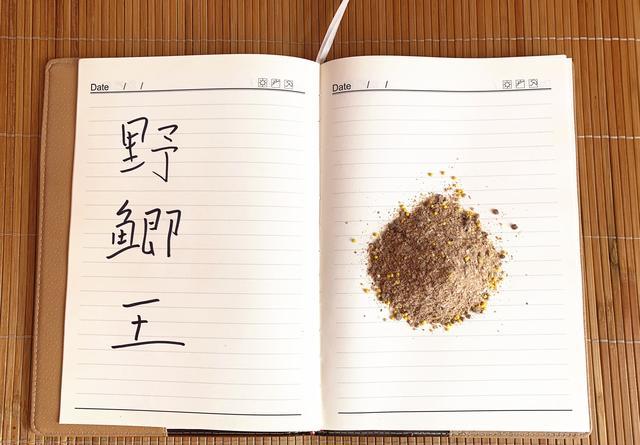 Date / /
Date / /
野
鲫
王